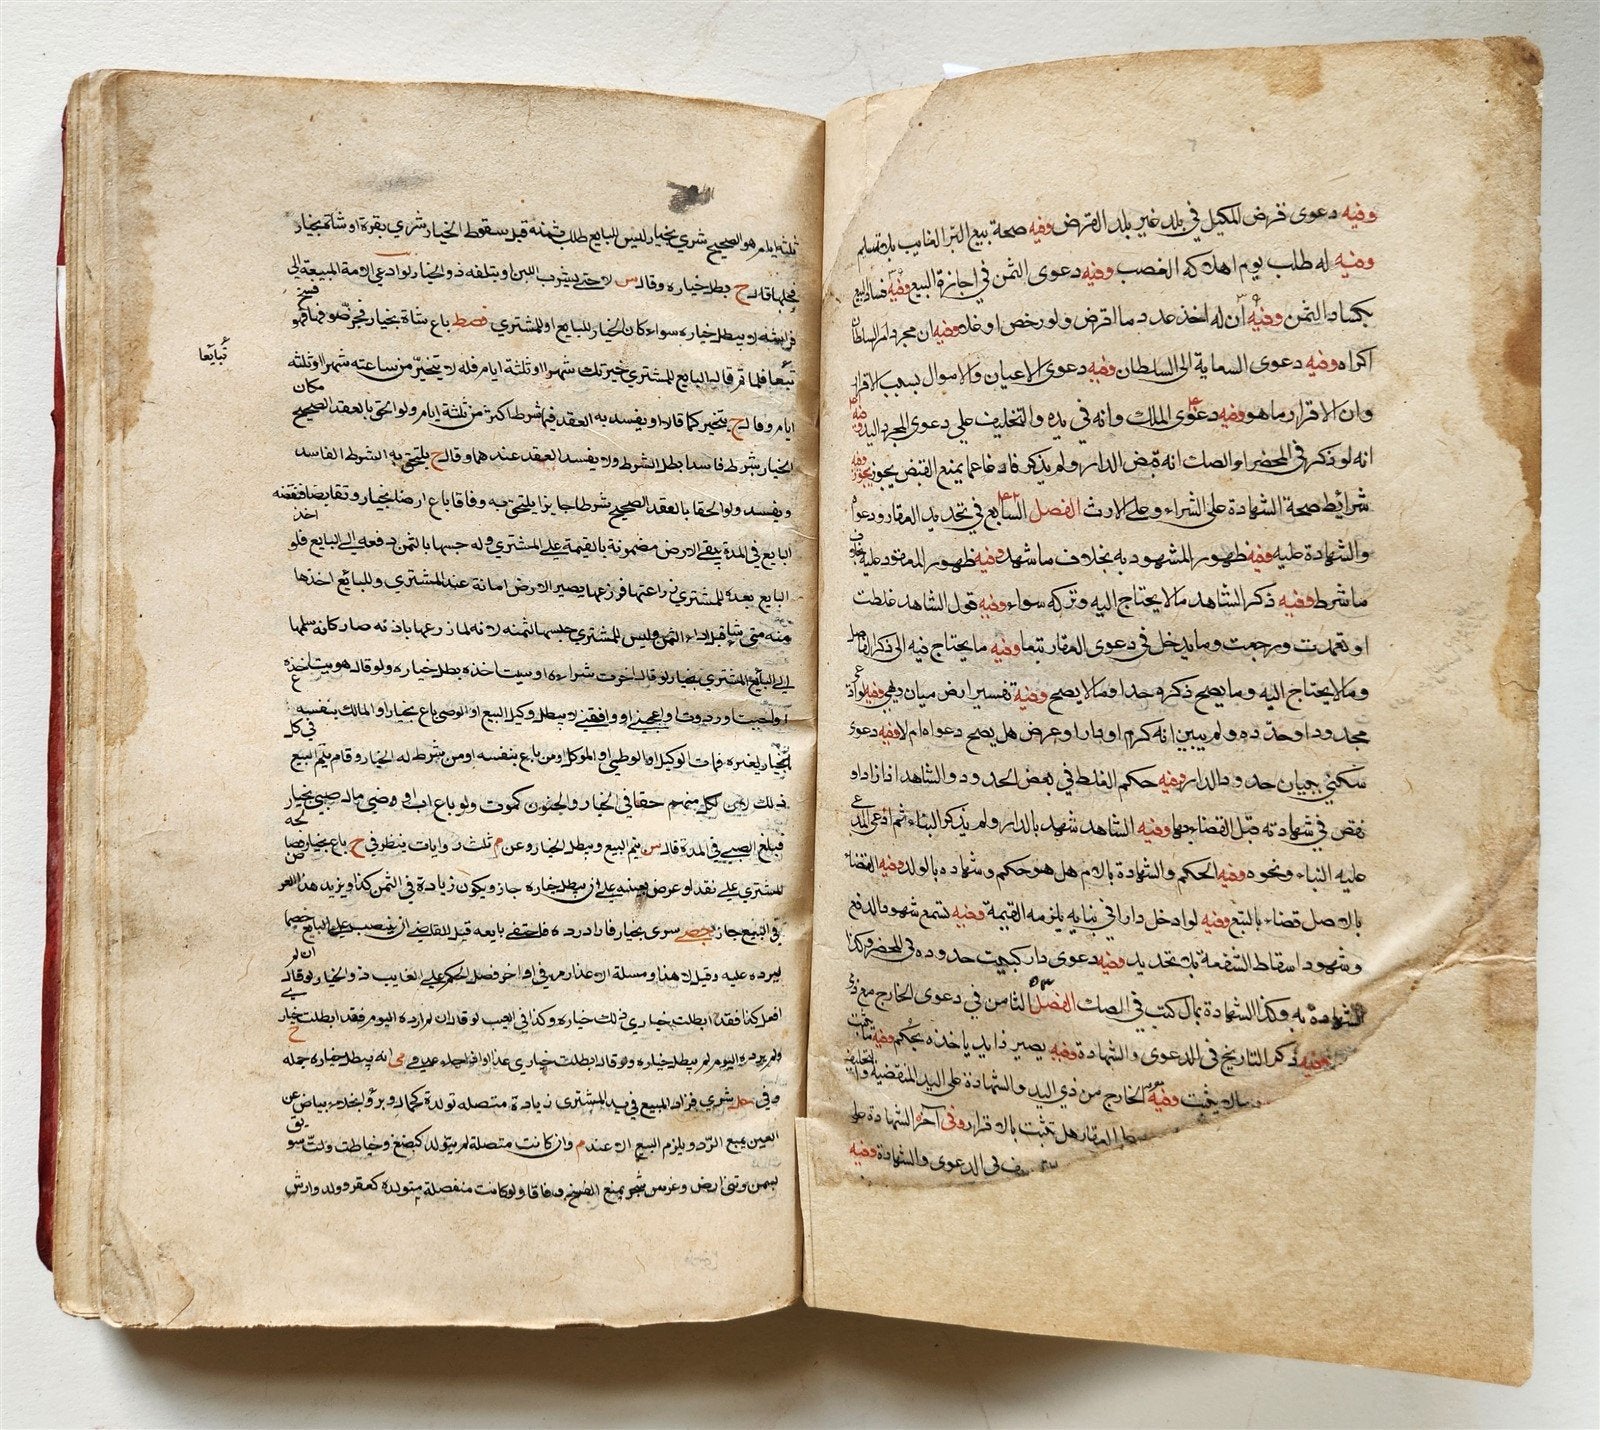 وفيه دعوى قرض المكيل في بلد غير بلد القرض وفيه صحة بيع البر الغايب بلا تسلم
وفيه له طلب يوم اهلاكه الغصب وفيه دعوى الثمن في اجازة البيع وفيه فساد البيع
بكساد الثمن وفيه ان له اخذ عدد ما اقرض ولو رخص او غلا وفيه ان مجرد امر السلطان
اكراه وفيه دعوى السعاية الى السلطان وفيه دعوى الاعيان والاموال بسبب الاقرار
وان الاقرار ما هو وفيه دعوى الملك وانه في يده والتحليف على دعوى المجرد اليد وفيه
انه لو ذكر في المحضر او الصك انه قبض الدار ولم يذكر فارغا عما يمنع القبض يجوز
شرائط صحة الشهادة على الشراء وعلى الارث الفصل السابع في تحديد العقار ودعواه
والشهادة عليه وفيه ظهور المشهود به بخلاف ما شهد وفيه ظهور المعقود عليه بخلاف
ما شرط وفيه ذكر الشاهد ما لا يحتاج اليه وتركه سواء وفيه قول الشاهد غلطت
او تعمدت ورجعت وما يدخل في دعوى العقار تبعا وفيه ما يحتاج فيه الى ذكر الفاصل
وما لا يحتاج اليه وما يصح ذكره حدا وما لا يصح وفيه تفسير ارض ميان دهي وفيه لو ادعى
محدودا وحدده ولم يبين انه كرم او دار او عرض هل يصح دعواه ام لا وفيه دعوى
سكنى ببيان حدود الدار وفيه حكم الغلط في بعض الحدود والشاهد اذا زاد او
نقص في شهادته قبل القضاء بها وفيه الشاهد شهد بالدار ولم يذكر البناء ثم ادعى المدعى
عليه البناء ونحوه وفيه الحكم والشهادة بالام هل هو حكم وشهادة بالولد وفيه القضاء
بالاصل قضاء بالتبع وفيه لو ادخل دارا في بنايه يلزمه القيمة وفيه تسمع شهود الدفع
وشهود اسقاط الشفعة بلا تحديد وفيه دعوى دار كتبت حدوده في المحضر وكذا
الشهادة به وكذا الشهادة بمال كتب في الصك الفصل الثامن في دعوى الخارج مع ذي
وفيه ذكر التاريخ في الدعوى والشهادة وفيه يصير ذا يد ياخذه بحكم
يثبت وفيه الخارج من ذي اليد والشهادة على اليد المنقضية
العقار هل تثبت بالاقرار وفي آخره الشهادة على
في الدعوى والشهادة وفيه
ثلثة ايام هو الصحيح شري بخيار ليس للبايع طلب ثمنه قبل سقوط الخيار شري بقرة او شاة بخيار
فحلبها قال ح بطل خياره وقال س لا حتى يشرب اللبن او يتلفه ذو الخيار لو ادعى الامة المبيعة الى
فراشه لا يبطل خياره سواء كان الخيار للبايع او للمشتري باع شاة بخيار
تبايعا
ثم قال البايع للمشتري خيرتك شهرا او ثلثة ايام فله لا يتخير من ساعته شهرا او ثلثة
ايام وقال ح يتخير كما قالا ويفسد به العقد فيما شرط اكثر من ثلثة ايام ولو الحق بالعقد الصحيح
مكان
الخيار شرط فاسدا بطل الشرط ولا يفسد العقد عندهما وقال ح يلتحق به الشرط الفاسد
ويفسد ولو الحقا بالعقد الصحيح شرطا جايزا يلتحق به وفاقا باع ارضا بخيار وتقابضا فنقضه
البايع في المدة يبقى الارض مضمونة بالقيمة على المشتري وله حبسها بالثمن دفعه الى البايع فلو
اخذ
البايع بعده للمشتري في زراعتها فزرعها يصير الارض امانة عند المشتري وللبائع اخذها
منه متى شاء قبل اداء الثمن وليس للمشتري حبسها لثمنه لانه لما زرعها باذنه صار كانه سلمها
الى البائع المشتري بخيار لو قال اخرت شراءه او شيت اخذه بطل خياره ولو قال هويت اخذه
او احببت او رددت او اعجبني او وافقني لا يبطل وكيل البيع او الوصي باع بخيار او المالك بنفسه
بخيار لغيره فمات الوكيل او الوصي او الموكل او من باع بنفسه او من شرط له الخيار وقام يتم البيع
في كل
ذلك لان لكل منهم حقا في الخيار والجنون كموت ولو باع اب او وصي مال صبي بخيار
فبلغ الصبي في المدة قال س يتم البيع وبطل الخيار وعن م ثلث روايات ينظر في ح باع بخيار
المشتري على نقد او عرض بعينه على ان يبطل خياره جاز ويكون زيادة في الثمن كذا ويزيد هذا
في البيع جاز شرى بخيار فاراد رده فاختفى بايعه قيل للقاضي ان ينصب على البايع خصما
ليرده عليه وقيل لا هذا ومسئلة الاعذار مر في اواخر فصل الحكم على الغايب ذو الخيار لو قال
ان لم
افعل كذا فقد ابطلت خياري ذلك خياره وكذا في العيب لو قال ان لم ارده اليوم فقد ابطلت خياري
ولم يرده اليوم لم يبطل خياره ولو قال ابطلت خياري غدا او انه يبطل خياره
شري فزاد المبيع في يد المشتري زيادة متصلة تولدة
العين يمنع الرد ويلزم البيع الا عند م وان كانت متصلة لم يتولد كصبغ وخياطة ولت سويق
بسمن وبنى ارض وغرس شجر يمنع الفسخ وفاقا ولو كانت منفصلة متولدة كعقر وولد وارش